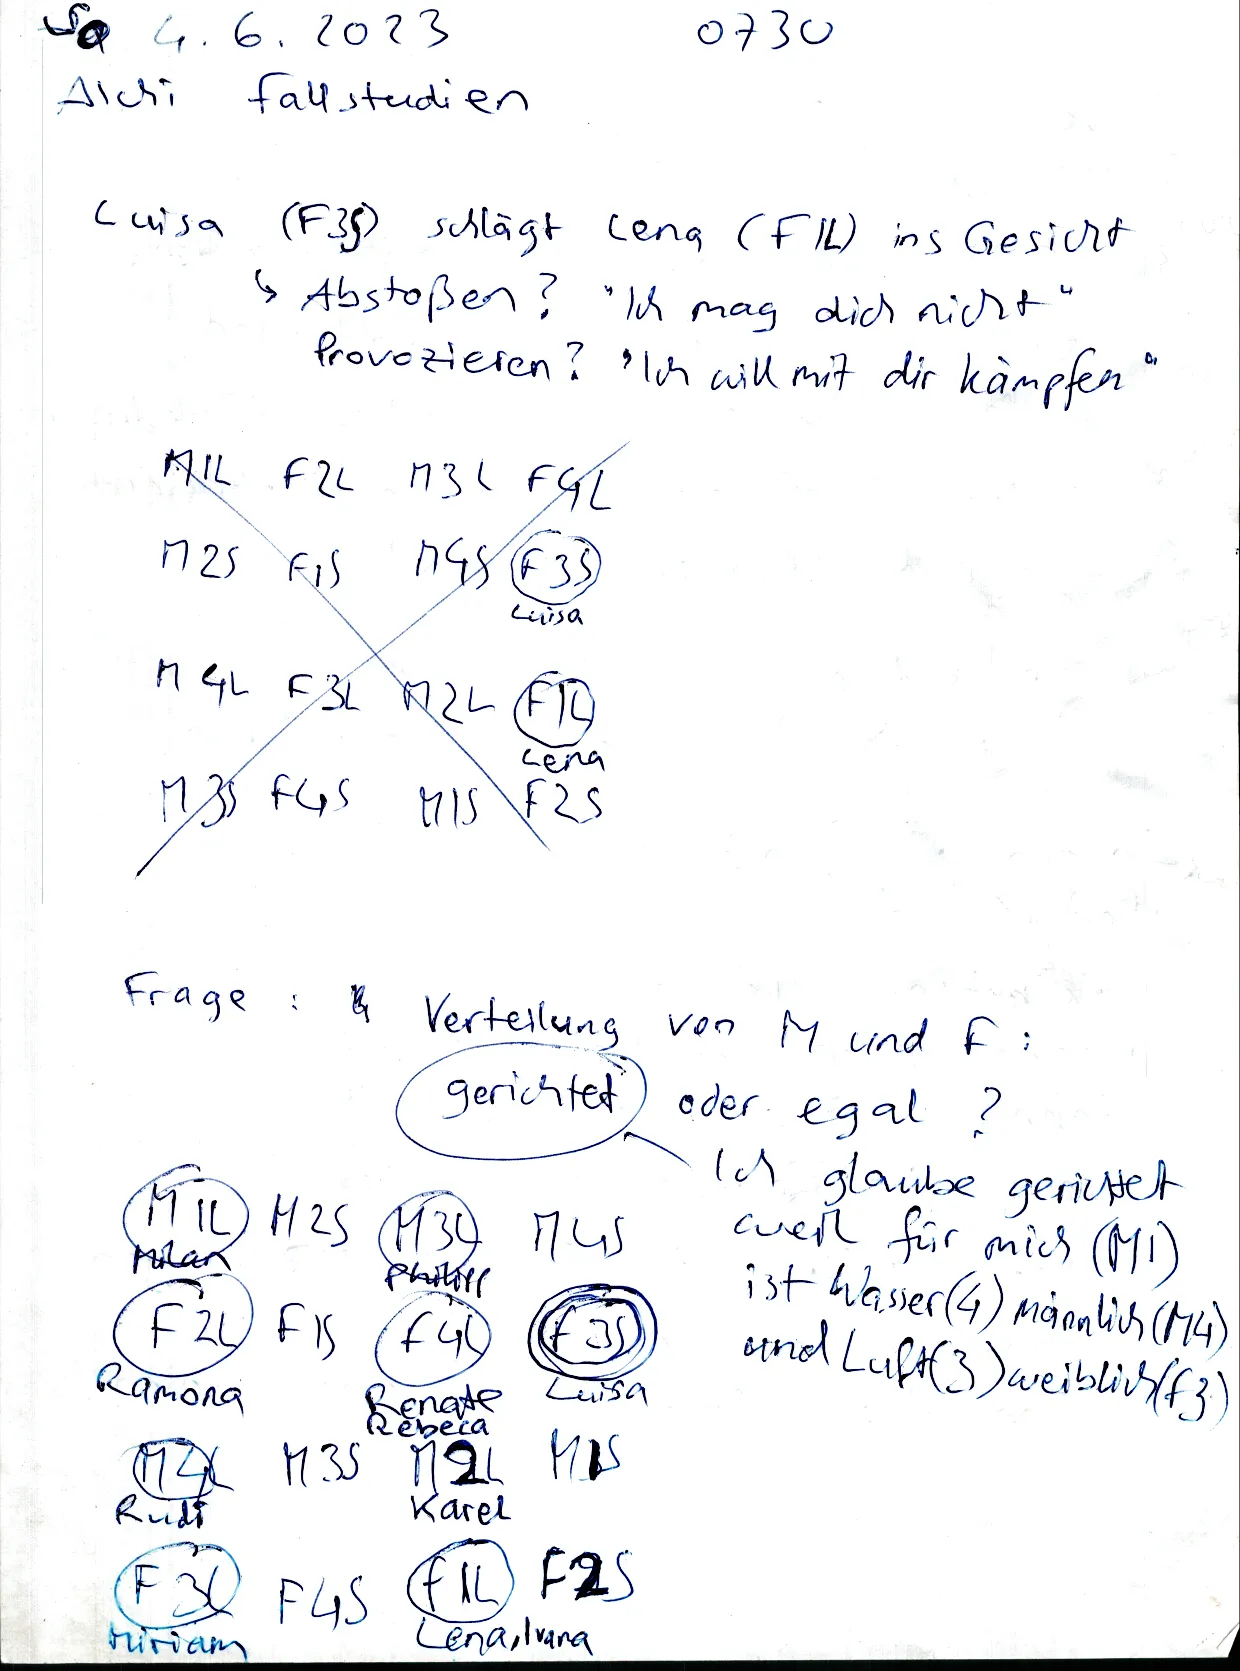 So 4.6.2023 0730
Alchi Fallstudien
Luisa (F3S) schlägt Lena (F1L) ins Gesicht
↳ Abstoßen? "Ich mag dich nicht"
Provozieren? "Ich will mit dir kämpfen"
M1L F2L M3L F4L
M2S F1S M4S F3S
Luisa
M4L F3L M2L F1L
Lena
M3S F4S M1S F2S
Frage: Verteilung von M und F:
gerichtet oder egal?
Ich glaube gerichtet
weil für mich (M1)
ist Wasser(4) männlich(M4)
und Luft(3) weiblich(F3)
M1L M2S M3L M4S
Milan Philipp
F2L F1S F4L F3S
Ramona Renate Luisa
Rebeca
M4L M3S M2L M1S
Rudi Karel
F3L F4S F1L F2S
Miriam Lena, Ivana